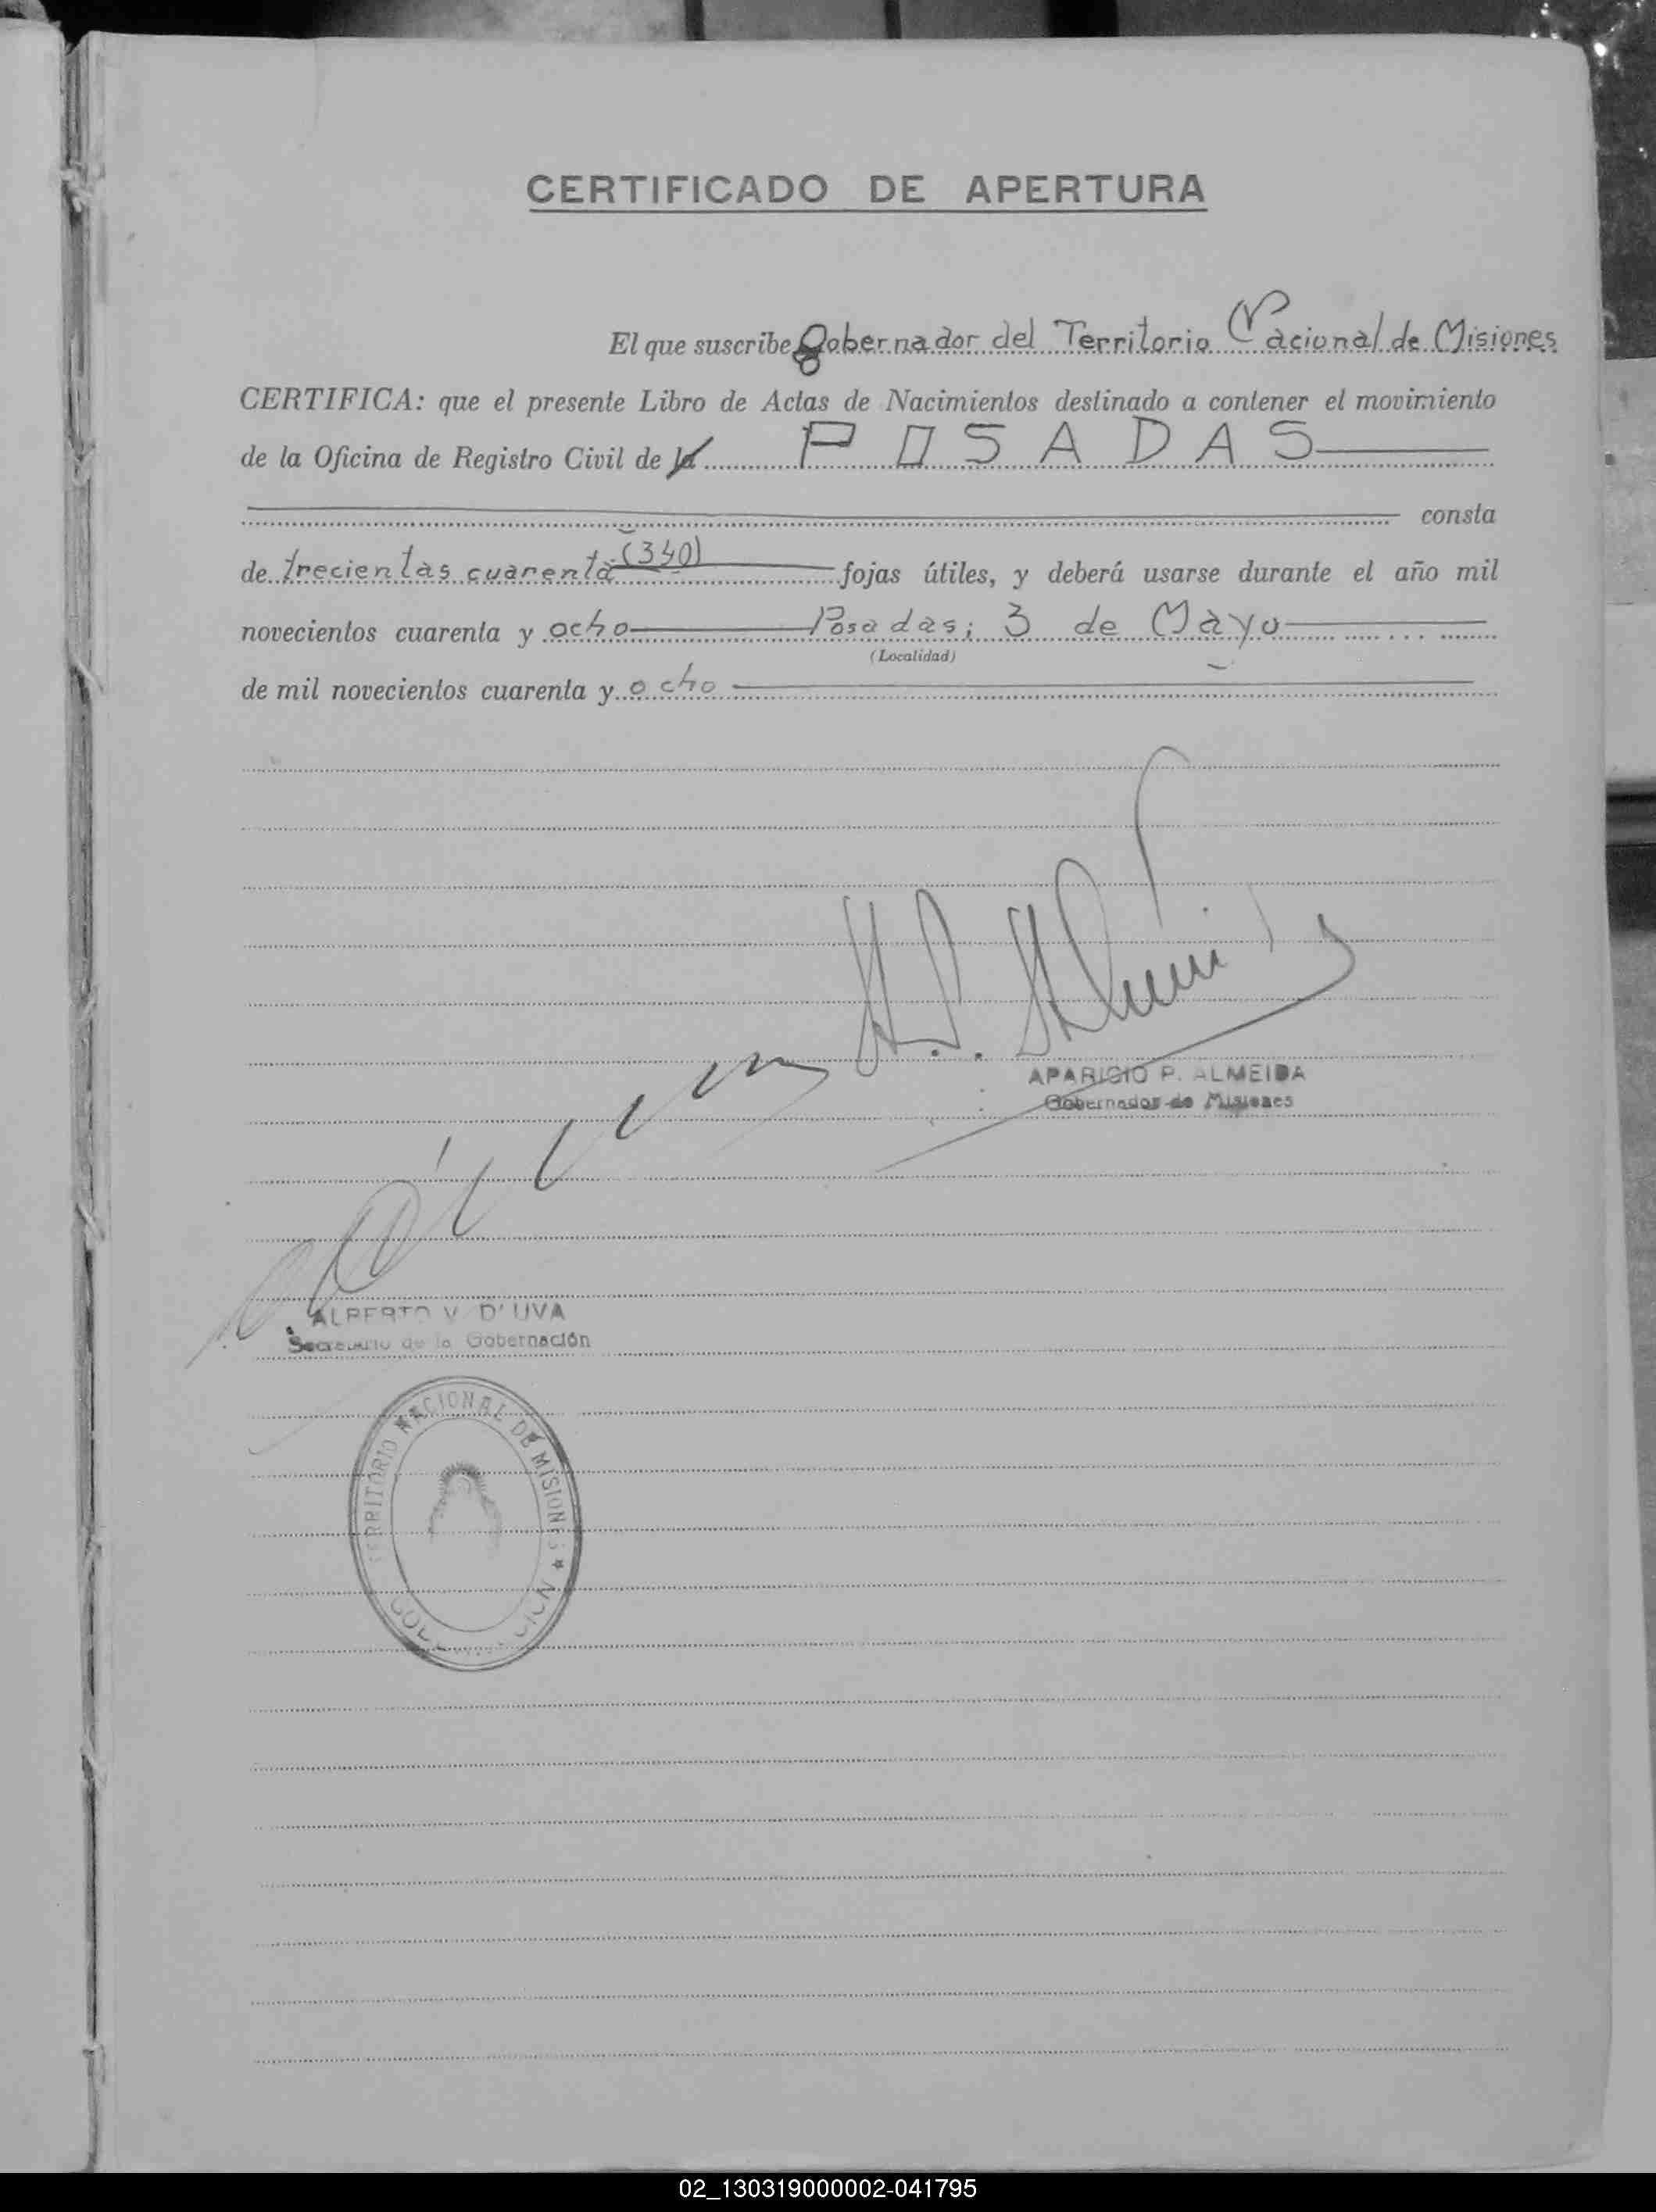 CERTIFICADO DE APERTURA
El que suscribe Gobernador del Territorio Nacional de Misiones
CERTIFICA: que el presente Libro de Actas de Nacimientos destinado a contener el movimiento
de la Oficina de Registro Civil de la POSADAS
consta
de trecientas cuarenta (340) fojas útiles, y deberá usarse durante el año mil
novecientos cuarenta y ocho Posadas; 3 de Mayo
(Localidad)
de mil novecientos cuarenta y ocho
APARICIO P. ALMEIDA
Gobernador de Misiones
ALBERTO V. D'UVA
Secretario de la Gobernación
TERRITORIO NACIONAL DE MISIONES
02_130319000002-041795